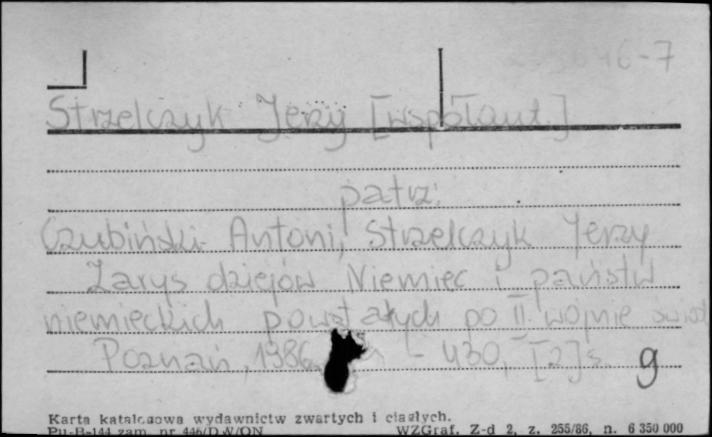 46-7
Strzelczyk Jerzy [współaut.]
patrz:
Czubiński Antoni, Strzelczyk Jerzy
Zarys dziejów Niemiec i państw
niemieckich powstałych po II wojnie świat
Poznań, 1986 - 430, [2] s. g
Karta katalogowa wydawnictw zwartych i ciągłych.
Pu-B-144 zam. nr 446/D W/ON WZGraf. Z-d 2, z. 255/86, n. 6 350 000